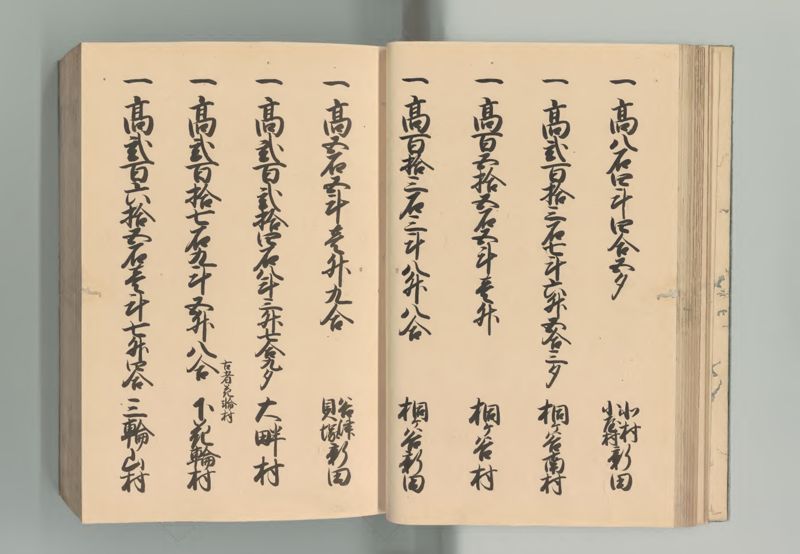 一高八石四斗四合五夕 小村 小屋村 新田
一高弐百拾三石七斗六升五合三夕 桐ケ谷南村
一高百五拾五石五斗壱升 桐ケ谷村
一高百拾三石三斗八升八合 桐ケ谷新田
一高五石五斗壱升九合 谷津 貝塚 新田
一高弐百弐拾四石八斗三升七合九夕 大畔村
古者花輪村
一高弐百拾七石九斗五升八合 下花輪村
一高弐百六拾五石壱斗七升四合 三輪山村